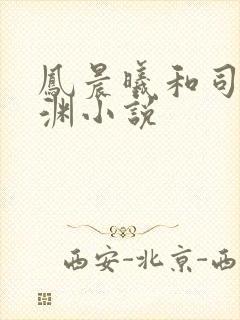 鳳晨曦和司
渊小说
西安-北京-西